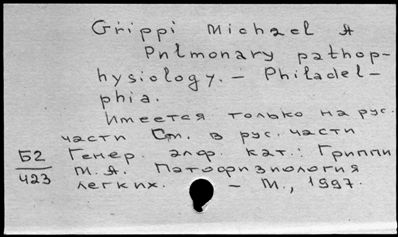 Grippi Michael A
Pulmonary pathop-
hysiology. – Philadel-
phia.
Имеется только на рус.
части См. в рус. части
Б2 Генер. алф. кат.: Гриппи
423 М.А. Патофизиология
легких. – М., 1997.